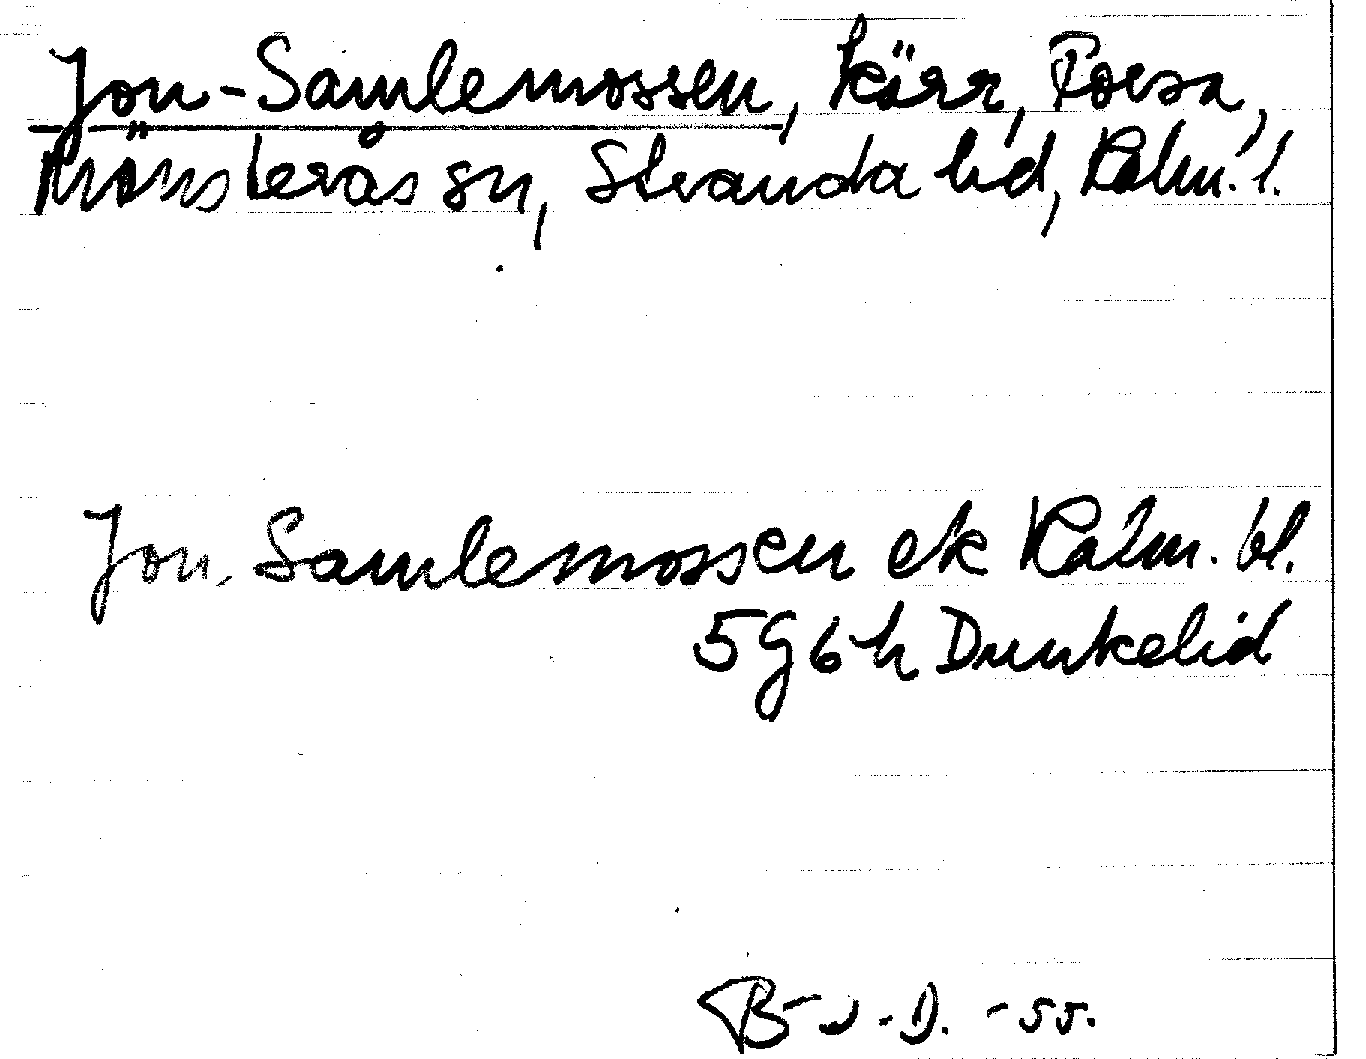 Jon-Samlemossen, kärr, Torsa,
Mönsterås sn, Stranda hd, Kalm. l.
Jon-Samlemossen ek Kalm. bl.
5G6h Dunkelid
B-J.D. -55.